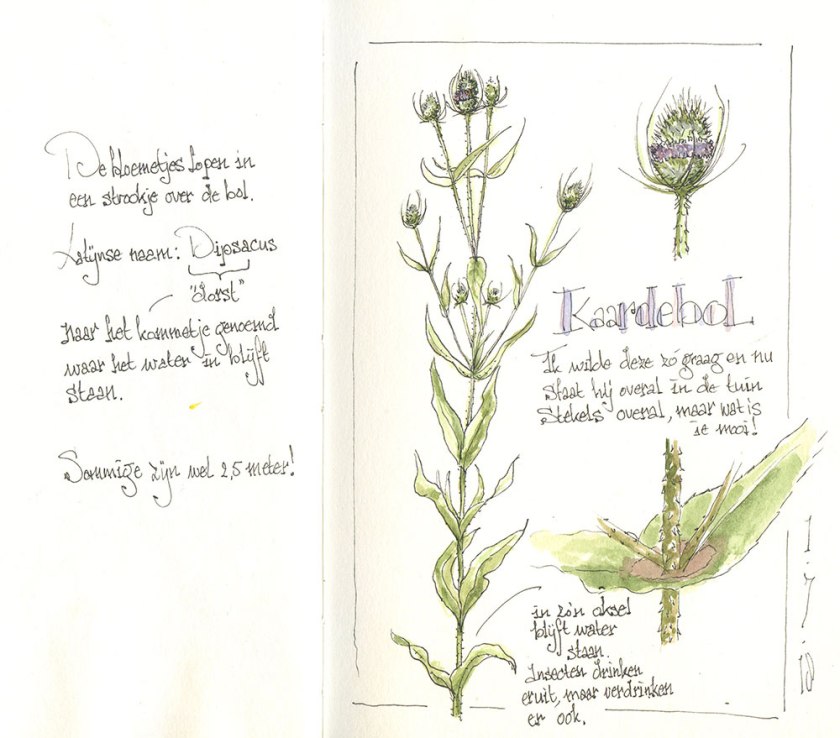 De bloemetjes lopen in
een strookje over de bol.
Latijnse naam: Dipsacus
"dorst"
naar het kommetje genoemd
waar het water in blijft
staan.
Sommige zijn wel 2,5 meter!
Kaardebol
Ik wilde deze zó graag en nu
staat hij overal in de tuin
Stekels overal, maar wat is
ie mooi!
in zo'n oksel
blijft water
staan.
Insecten drinken
eruit, maar verdrinken
er ook.
1.7.18